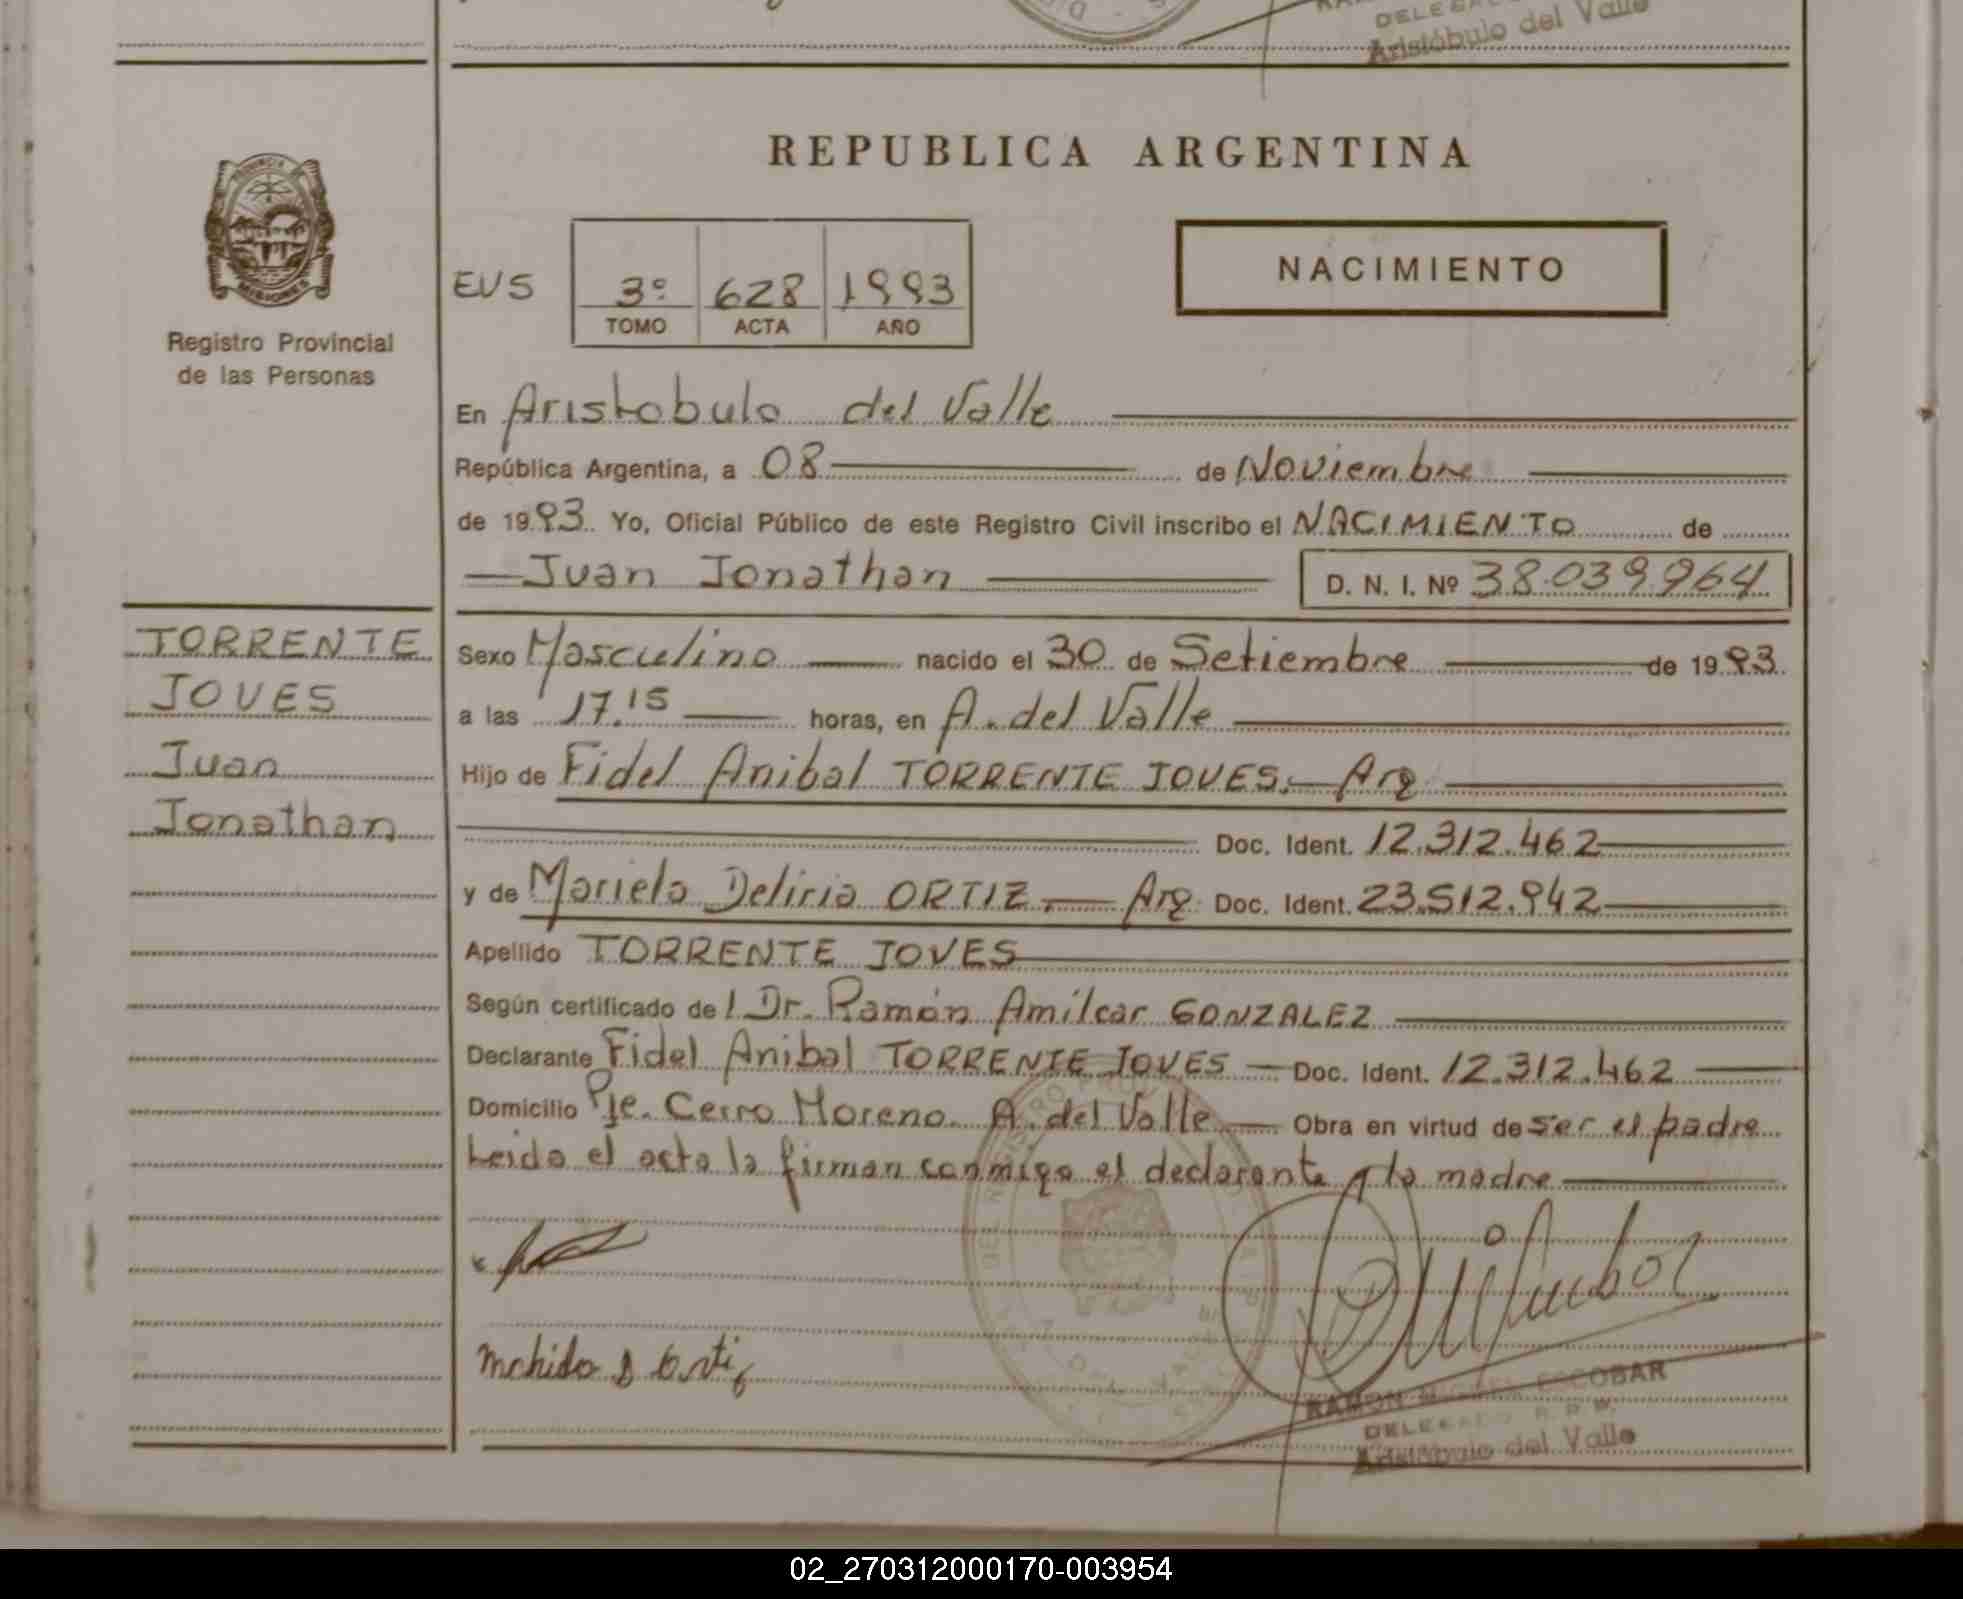 DELEGA
Aristóbulo del Valle
REPUBLICA ARGENTINA
PROVINCIA
MISIONES
Registro Provincial
de las Personas
EUS 3º 628 1993
TOMO ACTA AÑO
NACIMIENTO
En Aristobulo del Valle
República Argentina, a 08 de Noviembre
de 1993. Yo, Oficial Público de este Registro Civil inscribo el NACIMIENTO de
Juan Jonathan D. N. I. Nº 38.039.964
TORRENTE
JOVES
Juan
Jonathan
Sexo Masculino nacido el 30 de Setiembre de 1993.
a las 17.15 horas, en A. del Valle
Hijo de Fidel Anibal TORRENTE JOVES.- Arg
Doc. Ident. 12.312.462
y de Mariela Deliria ORTIZ.- Arg. Doc. Ident. 23.512.942
Apellido TORRENTE JOVES
Según certificado del Dr. Ramón Amilcar GONZALEZ
Declarante Fidel Anibal TORRENTE JOVES - Doc. Ident. 12.312.462
Domicilio Pje. Cerro Moreno. A. del Valle - Obra en virtud de ser el padre
Leida el acta la firman conmigo el declarante y la madre
RAMON MIGUEL ESCOBAR
DELEGADO R.P.P.
Aristóbulo del Valle
02_270312000170-003954